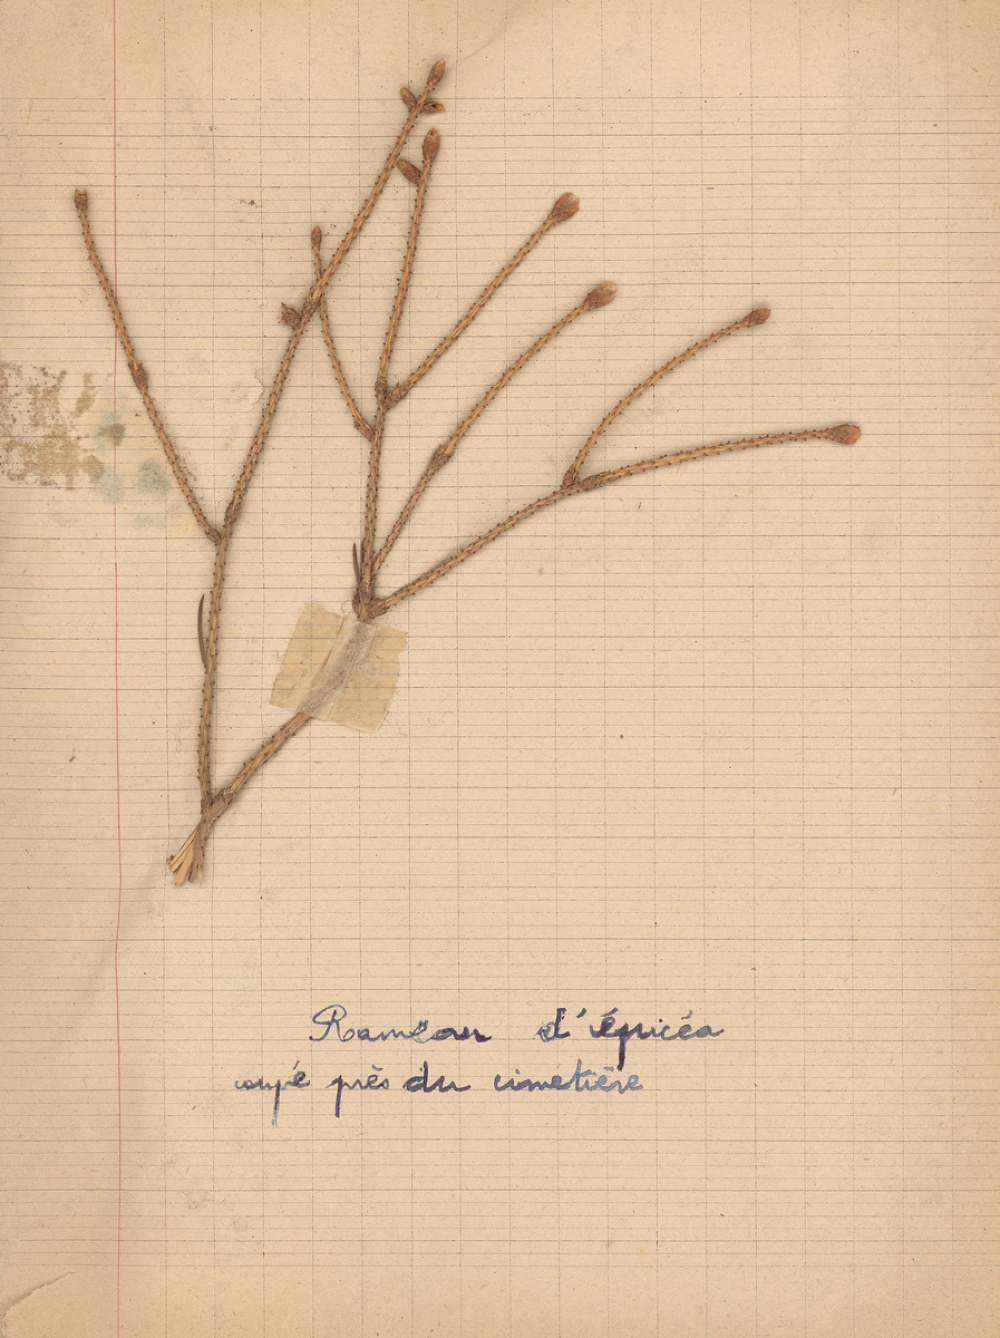 Rameau d'épicéa
coupé près du cimetière